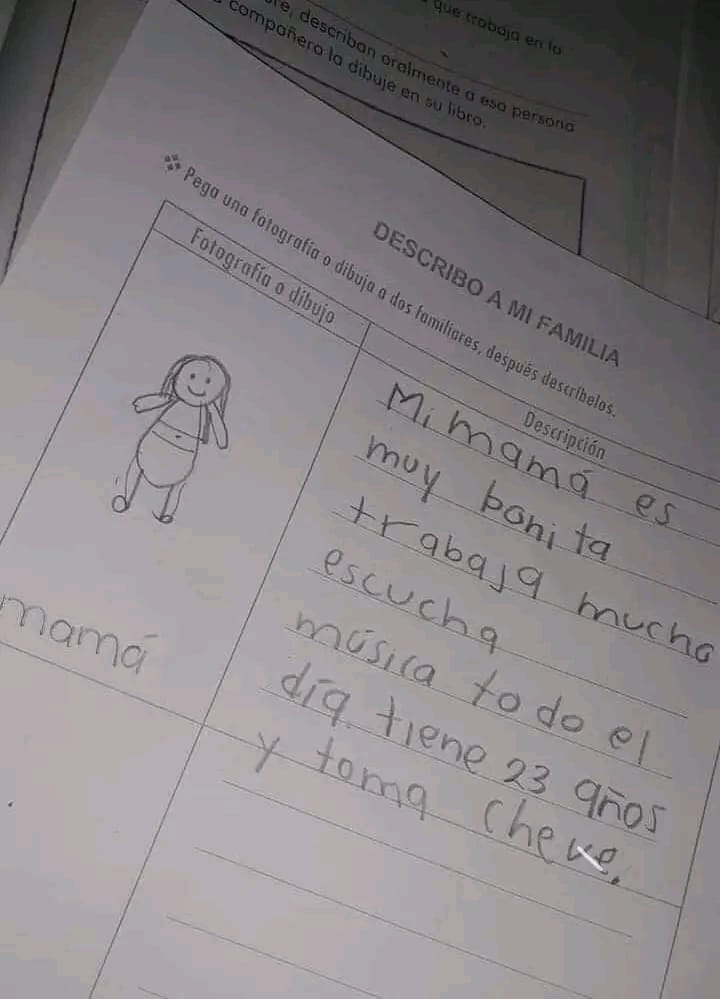 que trabaja en la
re, describan oralmente a esa persona
compañero la dibuje en su libro.
DESCRIBO A MI FAMILIA
Pega una fotografía o dibuja a dos familiares, después descríbelos.
Fotografía o dibujo
Descripción
Mi mamá es
muy bonita
trabaja mucho
escucha
música todo el
día. tiene 23 años
y toma cheve.
mamá